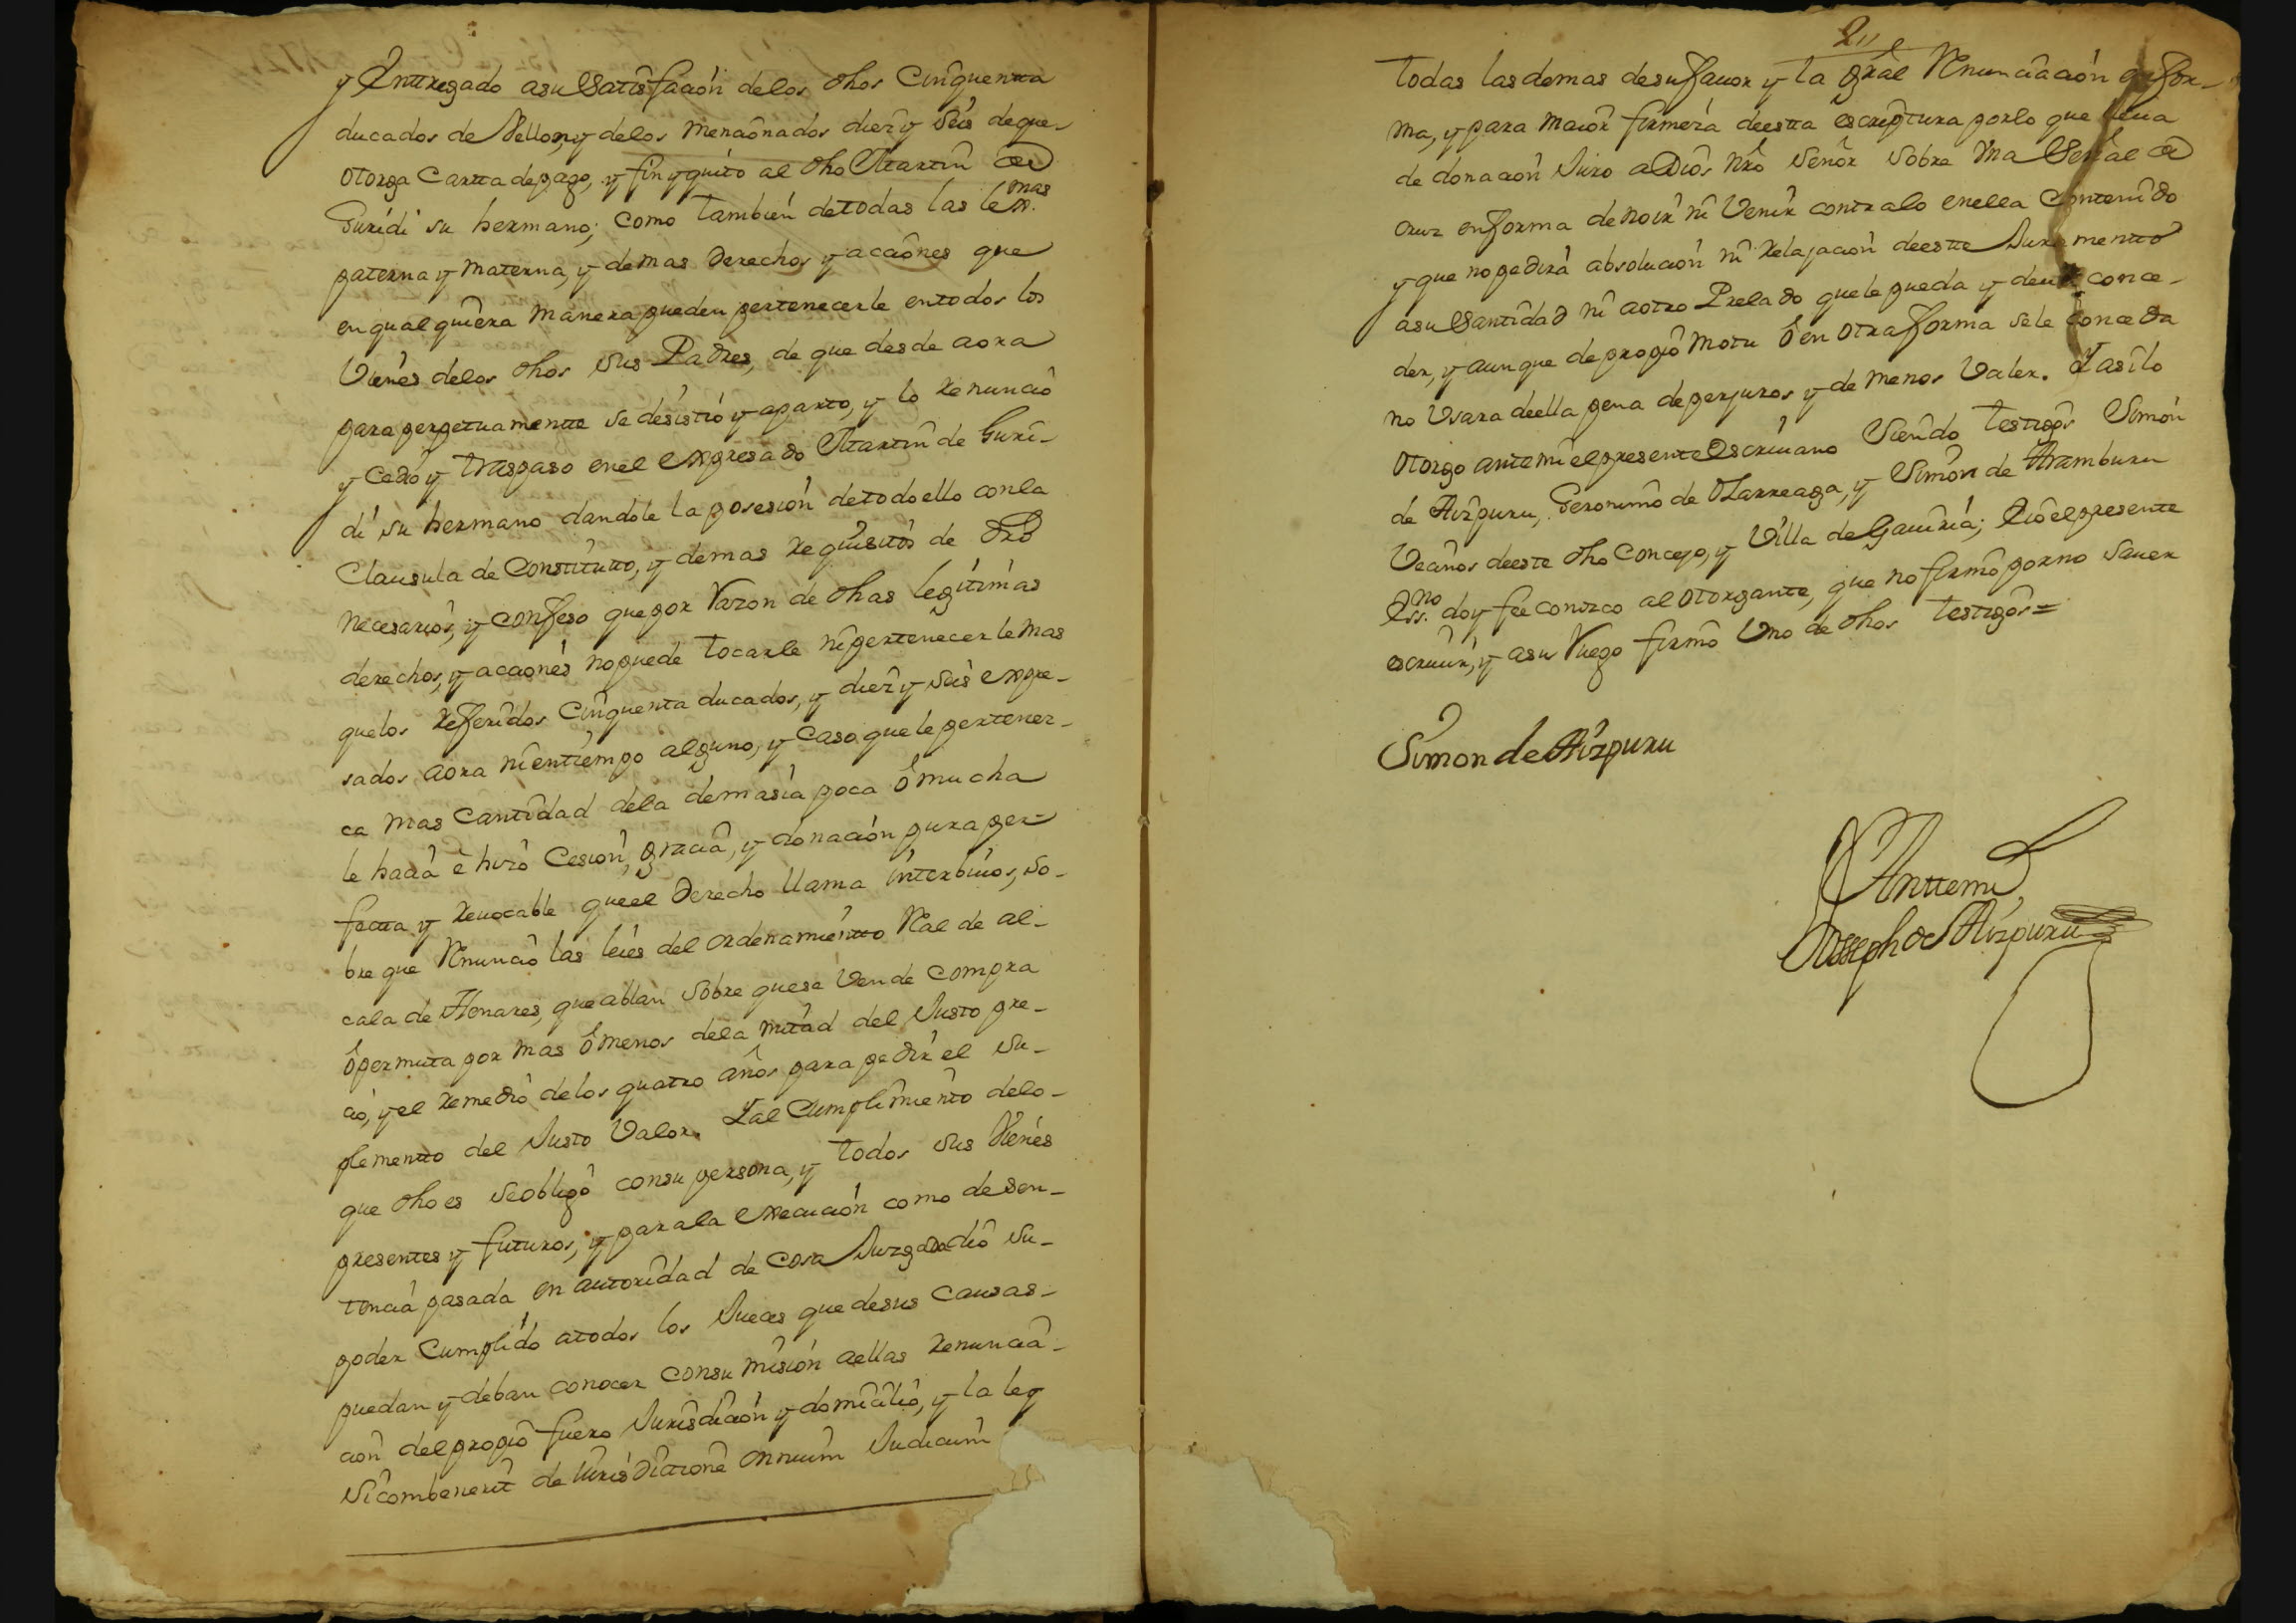 y Entregado asu Satisfación delos dhos Cinquenta
ducados de Vellon, y delos mencionados diez y seis deque
otorga Cartta depago, y finyquito al dho Martin de
Guridi su hermano; como tambien detodas las lexmas.
paterna y materna, y demas derechos y acciones que
en qualquiera manera pueden pertenecerle entodos los
Vienes delos dhos sus Padres, de que desde aora
para perpetuamentte se desistió y aparto, y lo renunció
y Cedió y traspaso enel expresado Martin de Guri-
di su hermano dandole la posesión detodoello conla
Clausula de Constitutto, y demas requisitos de dro
necesarios, y confeso que por razon de dhas legitimas
derechos, y acciones nopuede tocarle nipertenecerle mas
quelos referidos Cinquenta ducados, y diez y seis expre-
sados aora nientiempo alguno, y Caso quele pertenez-
ca mas Cantidad dela demasia poca ó mucha
le hacia é hizo Cesion, gracia, y donación pura per=
fecta y revocable queel Derecho llama interbivos, so-
bre que Renunció las leies del ordenamientto Real de al-
cala de Henares, queablan sobre quese Vende compra
ó permuta por mas ó menos dela mitad del Justo pre-
cio, y el remedio delos quatro años para pedir el su-
plementto del Justo Valor. Y al Cumplimiento delo-
que dho es se obligó consu persona, y todos sus Vienes
presenttes y futuros, y parala execución como desen-
tencia pasada en autoridad de cosa Juzgada dio su-
poder Cumplido atodos los Jueces que desus Causas-
puedan y deban conocer consu misión aellas renuncia-
ción delpropio fuero Jurisdición y domicilio, y la ley
sicombenerit de Jurisdictione omnium Judicum
2
todas las demas desu favor y la gral Renunciación enfor-
ma, y para maior firmeza deestta escriptura porlo que lleua
de donación Juro aDios nro Señor sobre vna Señal de
cruz enforma de no ir ni Venir contralo enella Contenido
y que nopedirá absolución ni relajación deeste Juramentto
asu Santidad ni aotro Prelado quele pueda y deua conce-
der, y aunque de propio motu ó en otra forma sele conceda
no Vsara deella pena deperjuros y de menos Valer. Y asilo
otorgo antemi elpresente Escriuano Siendo testigos Simon
de Aizpuru, Geronimo de Olarreaga, y Simon de Aramburu
Vecinos deeste dho Concejo, y Villa de Gauiria; E io elpresente
Essno. doy fee conozco al otorgante, que no firmó porno sauer
escriuir, y asu Ruego firmó Uno de dhos testigos=
Simon de Aizpuru
Anttemi
Joseph de Aizpuru